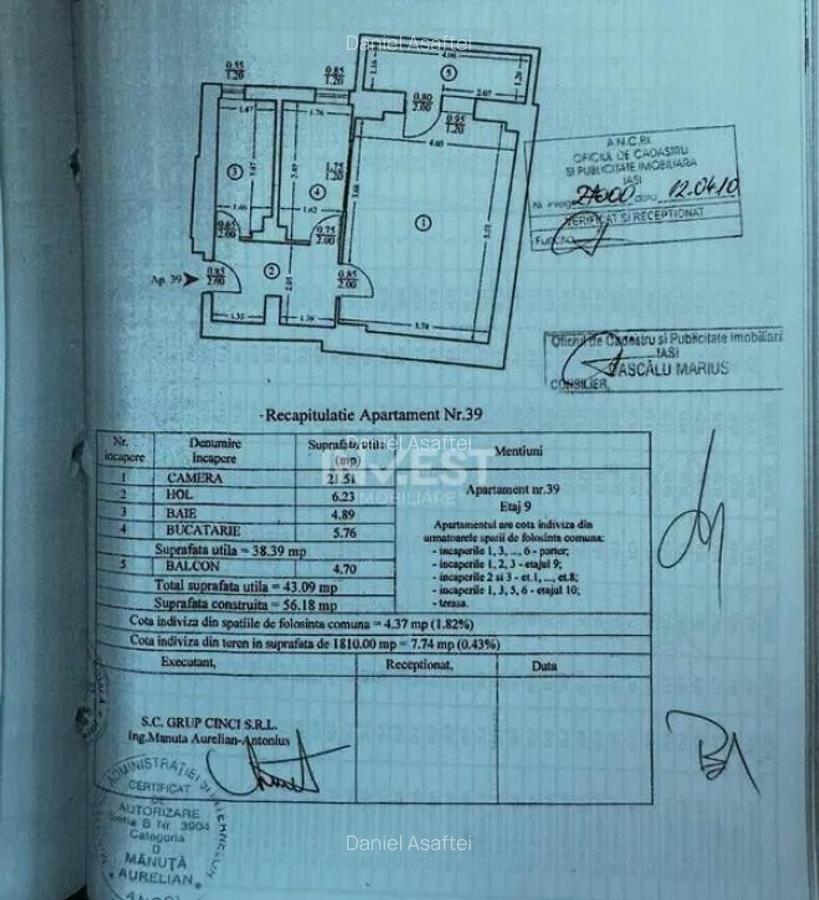 Daniel Asaftei
4.06
1.16
5
2.07
0.55
1.20
0.85
1.20
0.80
2.00
0.95
1.20
1.47
1.76
4.05
3
1.75
1.20
4
1.46
1.62
1
0.75
2.00
2
Ap. 39
0.85
2.00
0.85
2.00
2.05
1.35
3.74
A.N.C.P.I.
OFICIUL DE CADASTRU
SI PUBLICITATE IMOBILIARA
IASI
data 12.04.10
VERIFICAT SI RECEPTIONAT
Oficiul de Cadastru si Publicitate Imobiliara
IASI
DASCĂLU MARIUS
CONSILIER,
-Recapitulatie Apartament Nr.39
Nr. incapere Denumire incapere Suprafata utila (mp) Mentiuni
Daniel Asaftei
INVEST
IMOBILIARE
1 CAMERA 21.51
2 HOL 6.23
3 BAIE 4.89
4 BUCATARIE 5.76
Suprafata utila = 38.39 mp
5 BALCON 4.70
Total suprafata utila = 43.09 mp
Suprafata construita = 56.18 mp
Apartament nr.39
Etaj 9
Apartamentul are cota indiviza din
urmatoarele spatii de folosinta comuna:
- incaperile 1, 3, ..., 6 - parter;
- incaperile 1, 2, 3 - etajul 9;
- incaperile 2 si 3 - et.1, ..., et.8;
- incaperile 1, 3, 5, 6 - etajul 10;
- terasa.
Cota indiviza din spatiile de folosinta comuna = 4.37 mp (1.82%)
Cota indiviza din teren in suprafata de 1810.00 mp = 7.74 mp (0.43%)
Executant, Receptionat, Data
S.C. GRUP CINCI S.R.L.
ing.Manuta Aurelian-Antonius
CERTIFICAT
DE
AUTORIZARE
Seria B Nr. 3904
Categoria
D
MĂNUŢĂ
AURELIAN
Daniel Asaftei